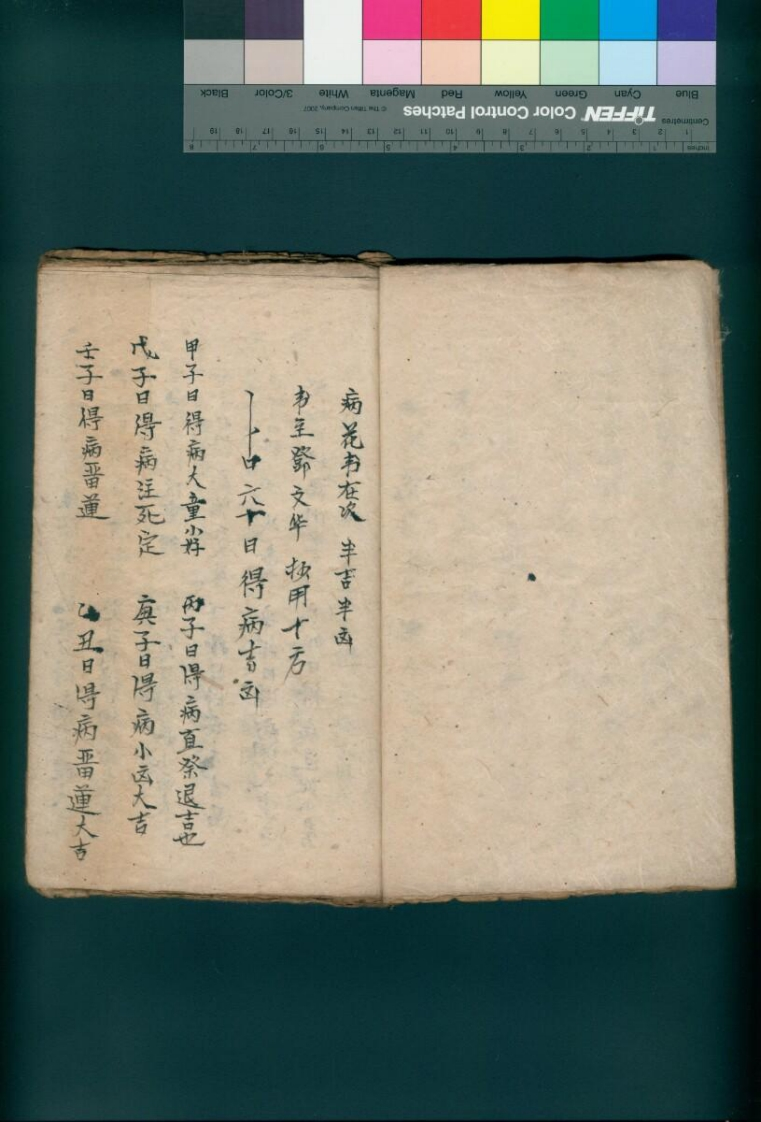 Blue Cyan Green Yellow Red Magenta White 3/Color Black
TIFFEN Color Control Patches © The Tiffen Company, 2007
Centimetres 1 2 3 4 5 6 7 8 9 10 11 12 13 14 15 16 17 18 19
Inches 1 2 3 4 5 6 7 8
病花书在次 半吉半凶
书主鄧文华 用十方
六十日得病吉凶
甲子日得病大重小好 丙子日得病直祭退吉也
戊子日得病注死定 庚子日得病小凶大吉
壬子日得病畨蓮 乙丑日得病畨蓮大吉